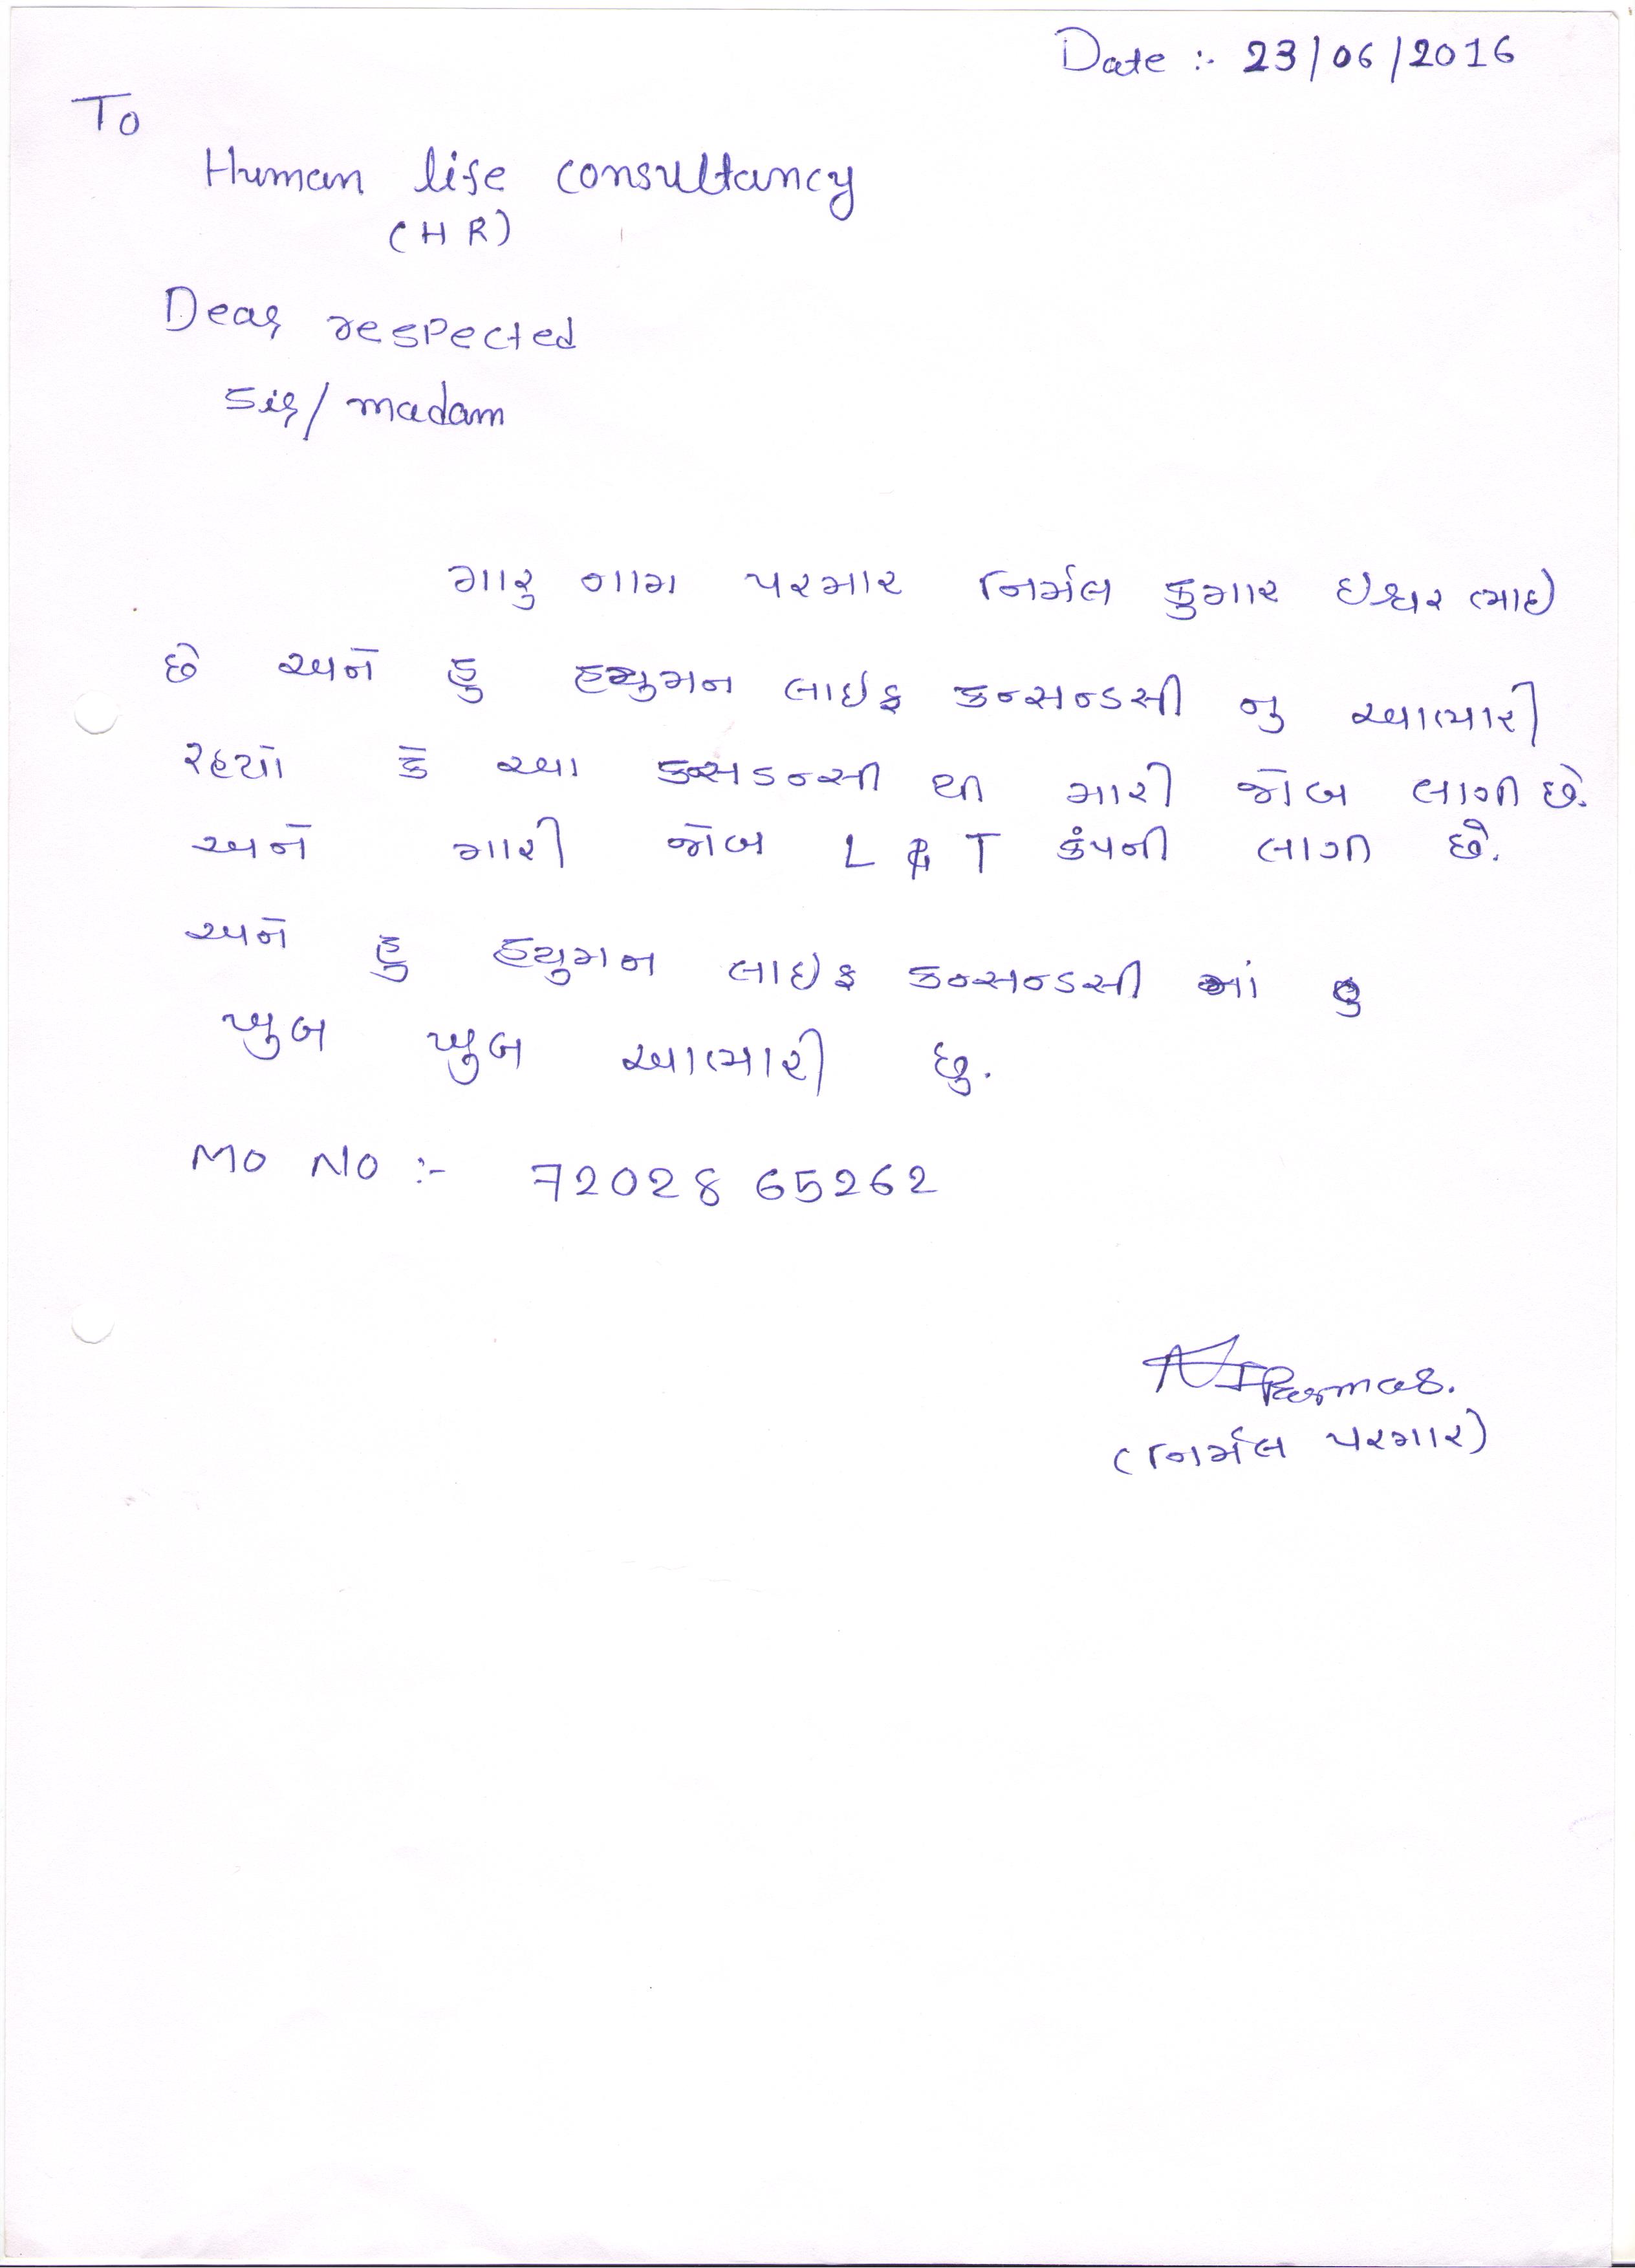 Date :- 23/06/2016
To
Human life consultancy
(HR)
Dear respected
Sir/madam
મારુ નામ પરમાર નિર્મલ કુમાર ઇશ્વરભાઇ
છે અને હુ હ્યુમન લાઇફ કન્સન્ડસી નુ આભારી
રહયો કે આ કન્સડન્સી થી મારી જોબ લાગી છે.
અને મારી જોબ L & T કંપની લાગી છે.
અને હુ હયુમન લાઇફ કન્સન્ડસી માં
ખુબ ખુબ આભારી છુ.
MO NO :- 72028 65262
N I Parmar.
(નિર્મલ પરમાર)